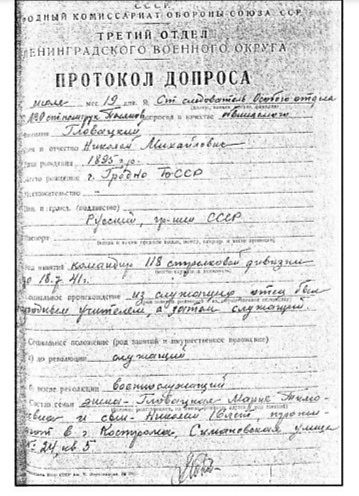 СССР
РОДНЫЙ КОМИССАРИАТ ОБОРОНЫ СОЮЗА ССР
ТРЕТИЙ ОТДЕЛ
ЛЕНИНГРАДСКОГО ВОЕННОГО ОКРУГА
ПРОТОКОЛ ДОПРОСА
июля мес 19 дня. Я, Ст следователь Особого отдела
допросил в качестве обвиняемого
Гловацкий
и отчество Николай Михайлович
рождения 1895 г.р.
рождения г. Гродно БССР
и гражд. (подданство)
Русский, гр-нин СССР
Паспорт
занятий командир 118 стрелковой дивизии
до 18.7.41 г.
Социальное происхождение из служащих отец был
народным учителем, а затем служащий.
Социальное положение (род занятий и имущественное положение)
а) до революции служащий
после революции военнослужащий
Состав семьи жена - Гловацкая Мария Тимо-
и сын - Николай 16 лет, прожи-
в г. Кострома, Симановская улица
24, кв 5